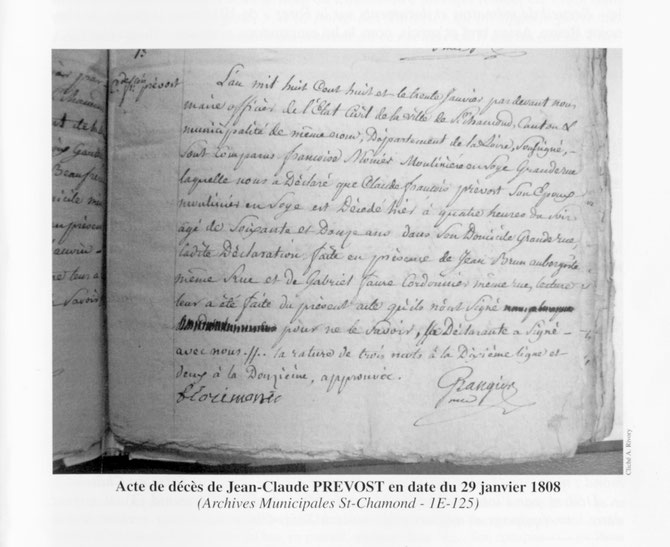 13
Décès prévost
L'an mil huit Cent huit et le trente Janvier pardevant nous
maire officier de l'Etat Civil de la ville de St Chamond, Canton &
municipalité de même nom, Département de la Loire, Soussigné,
Sont comparus françoise Moulinière en Soye Grande rue
laquelle nous a Déclaré que Claude françois prevost Son Epoux
moulinier en Soye est Décédé hier à quatre heures du Soir
agé de Soixante et Douze ans dans Son Domicile Grande rue,
ladite Déclaration faite en présence de Jean Brun aubergiste
même Rue et de Gabriel faure Cordonnier même rue, lecture
leur a été faite du présent acte qu'ils n'ont Signé
pour ne le Savoir, la Déclarante a Signé
avec nous //. la rature de trois mots à la Dixième ligne et
deux à la Douzième, approuvée.
Grangier
maire
Cliché A. Rivory
Acte de décès de Jean-Claude PREVOST en date du 29 janvier 1808
(Archives Municipales St-Chamond - 1E-125)